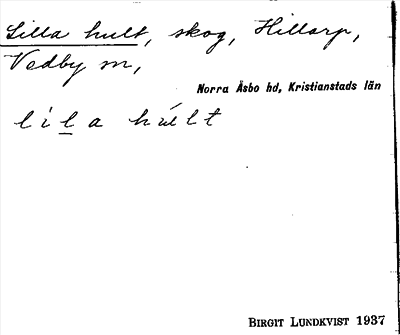 Lilla hult, skog, Hillarp,
Vedby sn,
Norra Åsbo hd, Kristianstads län
lila hult
BIRGIT LUNDKVIST 1937